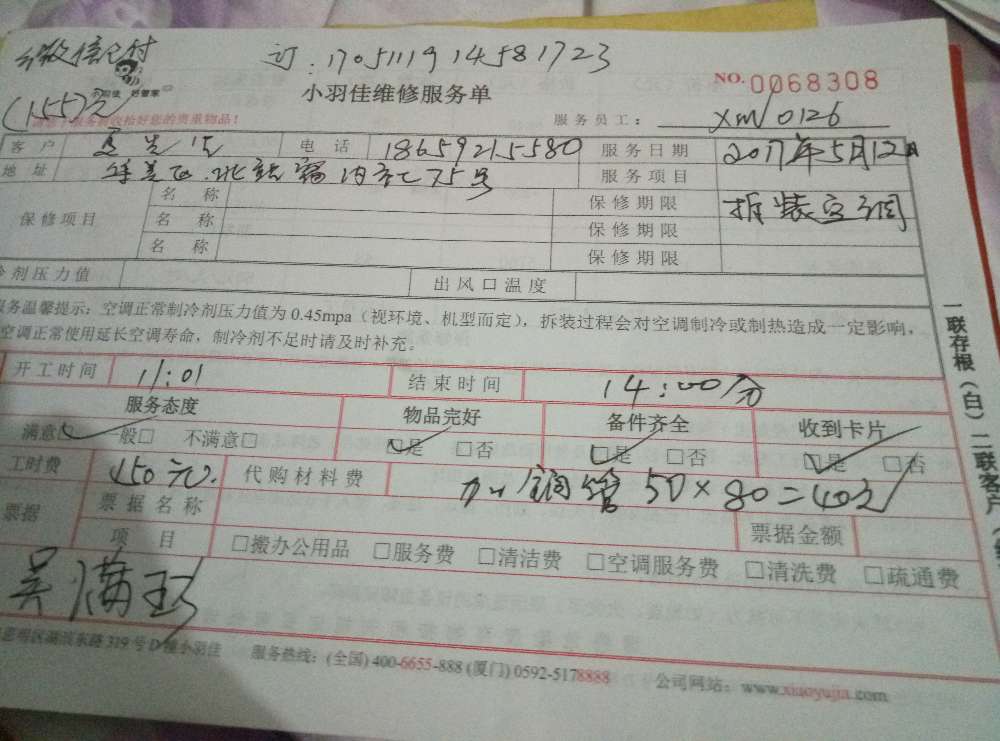 微信已付 订:170511191458 1723
(155)元 小羽佳 好管家
NO.0068308
小羽佳维修服务单
服务员工: XMN0126
客户 先生 电话 18659215580 服务日期 2017年5月12日
地址 75号 服务项目 拆装空调
保修项目 名称 保修期限
名称 保修期限
名称 保修期限
冷剂压力值 出风口温度
服务温馨提示:空调正常制冷剂压力值为 0.45mpa(视环境、机型而定),拆装过程会对空调制冷或制热造成一定影响,
空调正常使用延长空调寿命,制冷剂不足时请及时补充。
开工时间 11:01 结束时间 14:00分
服务态度 物品完好 备件齐全 收到卡片
满意□ 一般□ 不满意□ □是 □否 □是 □否 □是 □否
工时费 150元. 代购材料费 加铜管 50×80=40元
票据 票据名称 票据金额
项目 □搬办公用品 □服务费 □清洁费 □空调服务费 □清洗费 □疏通费
吴满
思明区湖滨东路 319 号 D 小羽佳 服务热线:(全国) 400-6655-888 (厦门) 0592-5178888 公司网站:www.xiaoyujia.com
一联存根(白)二联客户